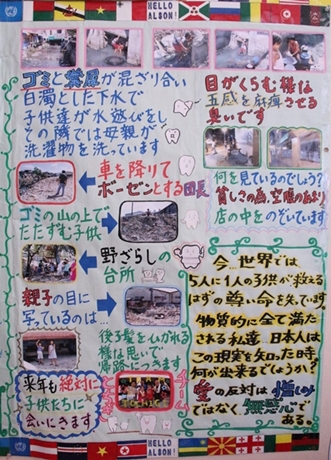 HELLO
ALSON!
ゴミと糞尿が混ざり合い
白濁とした下水で
子供達が水遊びをし
その隣では母親が
洗濯物を洗っています
目がくらむ様な
五感を麻痺させる
臭いです
車を降りて
ボーゼンとする団長
何を見ているのでしょう?
貧しさの為、空腹のあまり
店の中をのぞいています
ゴミの山の上で
たたずむ子供
野ざらしの
台所
親子の目に
写っているのは…
後ろ髪をひかれる
様な思いで
帰路につきます
来年も絶対に
子供たちに
会いにきます
今…世界では
5人に1人の子供が救える
はずの尊い命を失っています。
物質的に全て満た
される私達…日本人は
この現実を知った時、
何が出来るでしょうか?
愛の反対は憎しみ
ではなく無関心で
ある。
HELLO
ALSON!